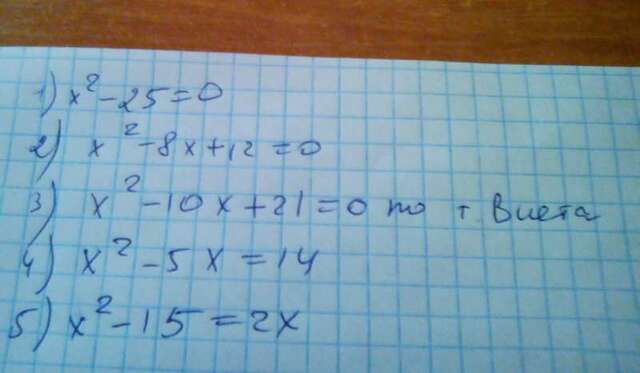 1) x² - 25 = 0
2) x² - 8x + 12 = 0
3) x² - 10x + 21 = 0 по т. Виета
4) x² - 5x = 14
5) x² - 15 = 2x